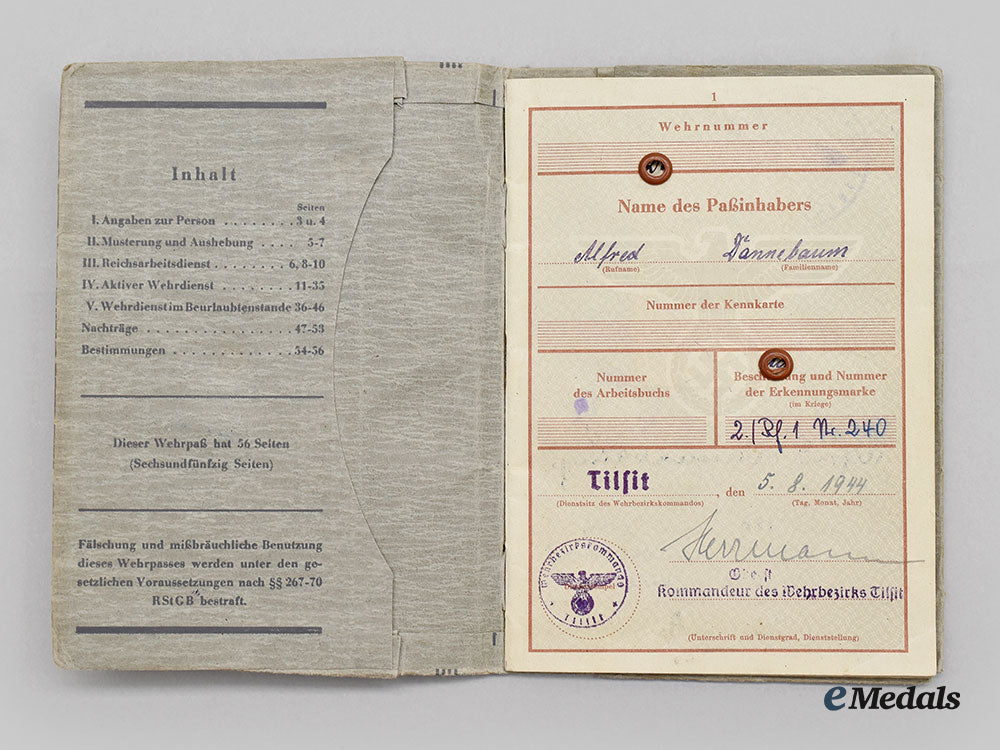 Inhalt
Seiten
I. Angaben zur Person ........ 3 u. 4
II. Musterung und Aushebung .... 5-7
III. Reichsarbeitsdienst ....... 6, 8-10
IV. Aktiver Wehrdienst ....... 11-35
V. Wehrdienst im Beurlaubtenstande 36-46
Nachträge ................ 47-53
Bestimmungen ............ 54-56
Dieser Wehrpaß hat 56 Seiten
(Sechsundfünfzig Seiten)
Fälschung und mißbräuchliche Benutzung
dieses Wehrpasses werden unter den ge-
setzlichen Voraussetzungen nach §§ 267-70
RStGB bestraft.
1
Wehrnummer
Name des Paßinhabers
Alfred Dannebaum
(Rufname) (Familienname)
Nummer der Kennkarte
Nummer
des Arbeitsbuchs
und Nummer
der Erkennungsmarke
(im Kriege)
2. Nr. 240
Tilsit, den 5. 8. 1944
(Dienstsitz des Wehrbezirkskommandos) (Tag, Monat, Jahr)
Herrmann
Oberst
Kommandeur des Wehrbezirks Tilsit
Wehrbezirkskommando
(Unterschrift und Dienstgrad, Dienststellung)
eMedals